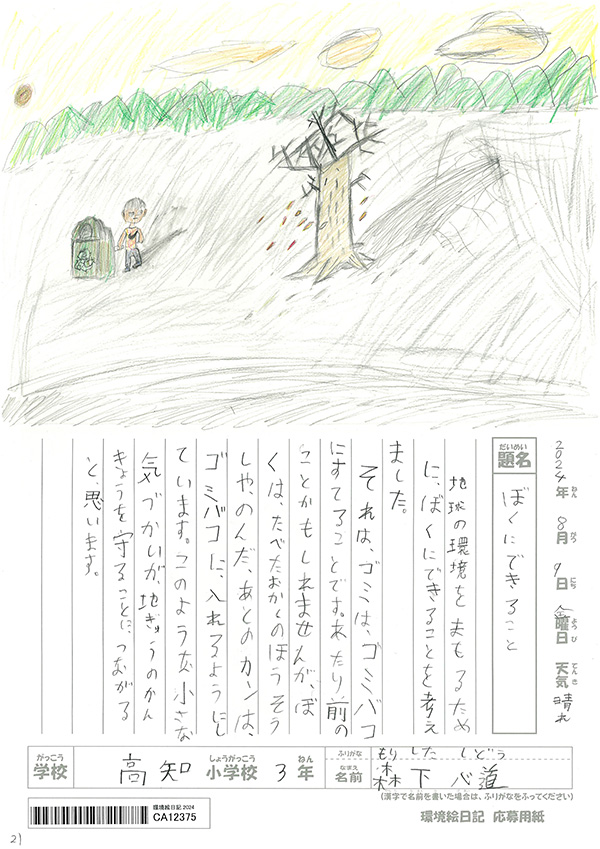 2024年 8月 9日 金曜日 天気 晴れ
ねん がつ にち ようび てんき
だいめい
題名
ぼくにできること
地球の環境をまもるため
に、ぼくにできることを考え
ました。
それは、ゴミは、ゴミバコ
にすてることです。あたり前の
ことかもしれませんが、ぼ
くは、たべたおかしのほうそう
しや、のんだ、あとのカンは、
ゴミバコに、入れるようにし
ています。このような小さな
気づかいが、地ぎゅうのかん
きょうを守ることに、つながる
と、思います。
がっこう しょうがっこう ねん
学校 高知 小学校 3年
ふりがな もりした しどう
なまえ
名前 森下 心道
(漢字で名前を書いた場合は、ふりがなをふってください)
環境絵日記 2024
CA12375
環境絵日記 応募用紙
21